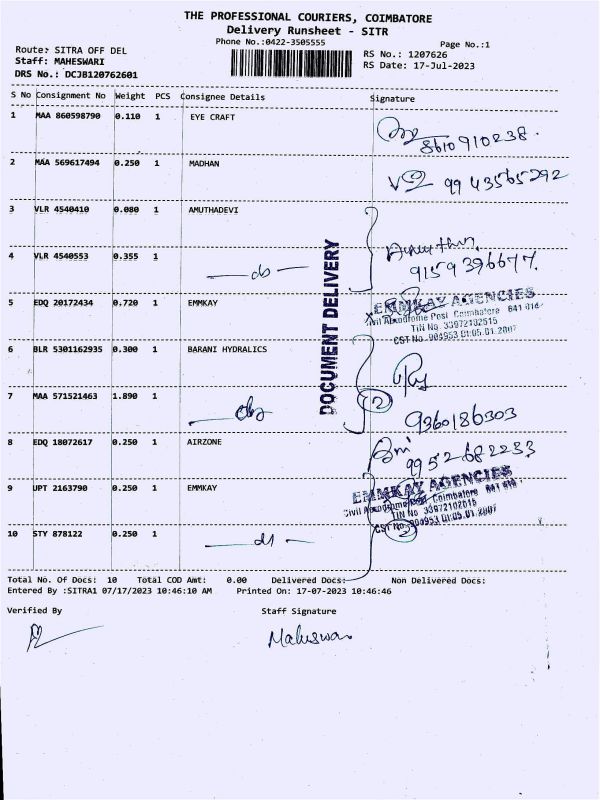 THE PROFESSIONAL COURIERS, COIMBATORE
Delivery Runsheet - SITR
Phone No.:0422-3505555
Page No.:1
Route: SITRA OFF DEL
Staff: MAHESWARI
DRS No.: DCJB120762601
RS No.: 1207626
RS Date: 17-Jul-2023
S No Consignment No Weight PCS Consignee Details Signature
1 MAA 860598790 0.110 1 EYE CRAFT
8610910238.
2 MAA 569617494 0.250 1 MADHAN
9943565292
3 VLR 4540410 0.080 1 AMUTHADEVI
4 VLR 4540553 0.355 1 — do —
9159396677.
DOCUMENT DELIVERY
5 EDQ 20172434 0.720 1 EMMKAY
EMMKAY AGENCIES
Civil Aerodrome Post Coimbatore 641 014
TIN No 33972102515
CST No 904953 Dt:05.01.2007
6 BLR 5301162935 0.300 1 BARANI HYDRALICS
7 MAA 571521463 1.890 1 — do
2
9360186303
8 EDQ 18072617 0.250 1 AIRZONE
9952682233
9 UPT 2163790 0.250 1 EMMKAY
EMMKAY AGENCIES
Civil Aerodrome Post Coimbatore 641 014
TIN No 33972102515
CST No 904953 Dt:05.01.2007
10 STY 878122 0.250 1 — do —
2
Total No. Of Docs: 10 Total COD Amt: 0.00 Delivered Docs: Non Delivered Docs:
Entered By :SITRA1 07/17/2023 10:46:10 AM Printed On: 17-07-2023 10:46:46
Verified By Staff Signature
Maheswari